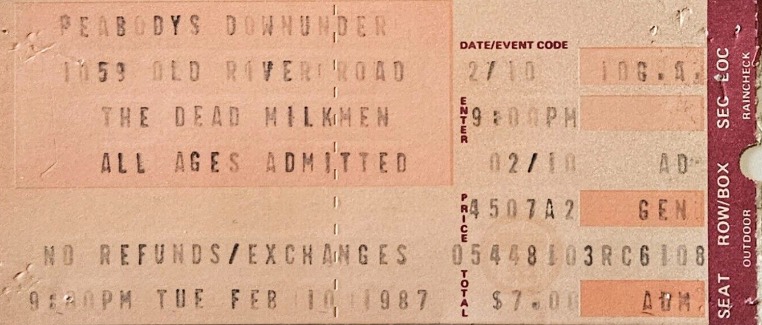 PEABODYS DOWNUNDER
1059 OLD RIVER ROAD
THE DEAD MILKMEN
ALL AGES ADMITTED
NO REFUNDS/EXCHANGES
9:30PM TUE FEB 10 1987
DATE/EVENT CODE
2/10 10G.A.
ENTER
9:00PM
02/10 AD
PRICE
4507A2 GEN
05448103RC6108
TOTAL
$7.00 ADM.
SEAT ROW/BOX SEC LOC
OUTDOOR RAINCHECK